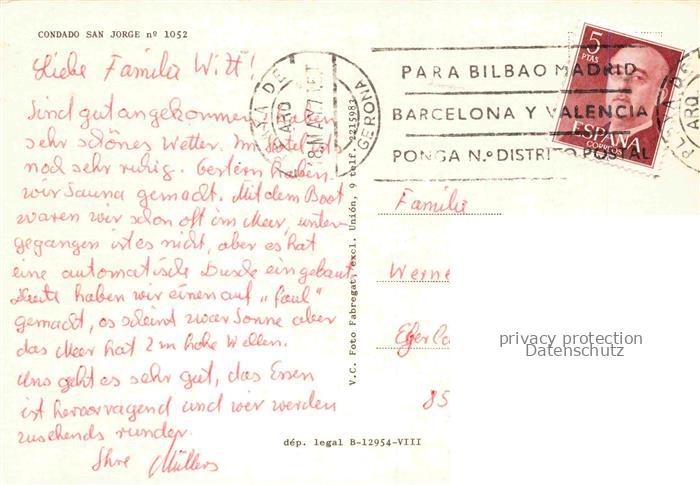 CONDADO SAN JORGE nº 1052
Liebe Familie Witt!
Sind gut angekommen, haben
sehr schönes Wetter. Im Hotel ist
noch sehr ruhig. Gestern haben
wir Sauna gemacht. Mit dem Boot
waren wir schon oft im Meer, unter-
gegangen ist es nicht, aber es hat
eine automatische Dusche eingebaut
Heute haben wir einen auf „faul"
gemacht, es scheint zwar Sonne aber
das Meer hat 2 m hohe Wellen.
Uns geht es sehr gut, das Essen
ist hervorragend und wir werden
zusehends runder.
Ihre Müllers
V.C. Foto Fabregat, excl. Unión, 9 telf. 2215983
dép. legal B-12954-VIII
PLAYA DE ARO
GERONA
PARA BILBAO MADRID
BARCELONA Y VALENCIA
PONGA N.º DISTRITO POSTAL
5
PTAS
ESPAÑA
CORREOS
Familie
Werne
85
privacy protection
Datenschutz